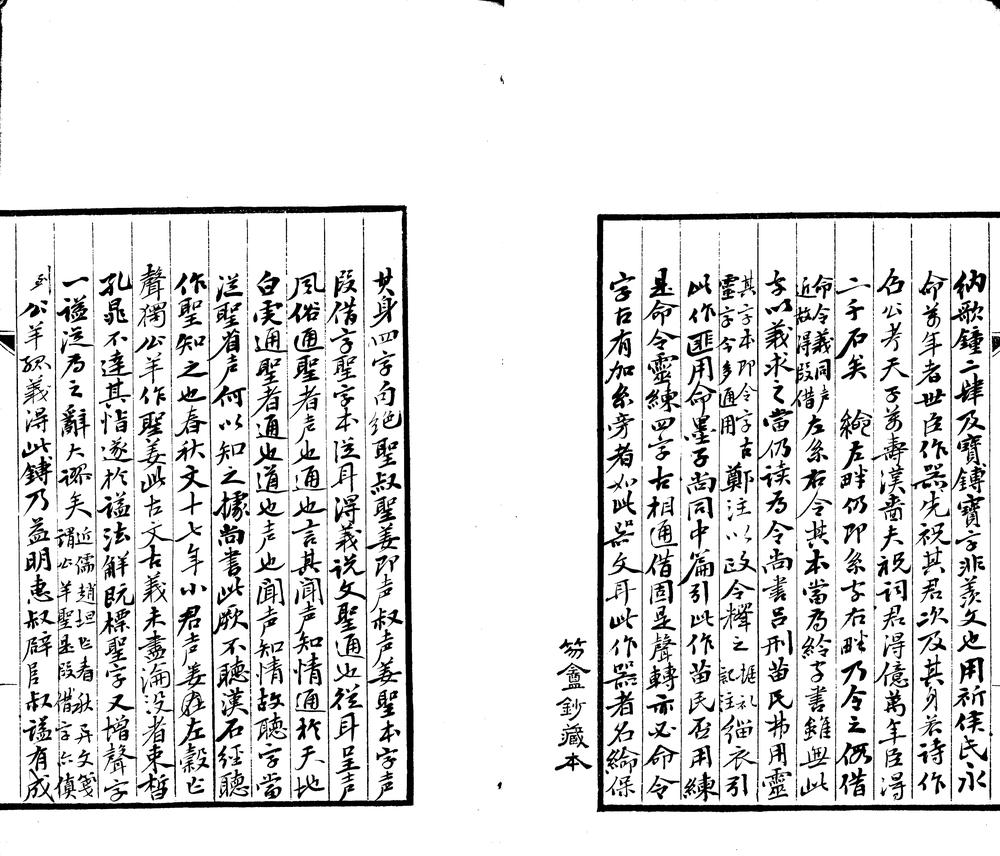 納歌鐘二肆及寶鎛寶字非羡文也用祈侯氏永
命萬年者世臣作器先祝其君次及其身若詩作
召公考天子萬壽漢嗇夫祝詞君得億萬年臣得
二千石矣 綸左畔仍即糸字右畔乃令之假借
命令義同声
近故得叚借
左糸右令其本當為紟字書雖無此
字以義求之當仍读為令尚書吕刑苗民弗用靈
其字本即令字古
靈字令多通用
鄭注以政令釋之
緇衣引
此作匪用命墨子尚同中篇引此作苗民否用練
是命令靈練四字古相通借固是聲轉亦必命令
字古有加糸旁者如此器文耳此作器者名紟保
笏盦鈔藏本
其身四字句絕聖叔聖姜即声叔声姜聖本字声
叚借字聖字本从耳得義説文聖通也從耳呈声
風俗通聖者声也通也言其聞声知情通於天地
白虎通聖者通也道也声也聞声知情故聽字當
从聖省声何以知之據尚書此厥不聽漢石經聽
作聖知之也春秋文十七年小君声姜左穀作
聲獨公羊作聖姜此古文古義未盡淪没者束晳
孔晁不達其恉遂於謚法解既標聖字又增聲字
一謚从為之辭大謬矣
近儒趙坦作春秋異文箋
謂公羊聖是叚借字亦傎
到
公羊孤義得此鎛乃益明惠叔辟臣叔謚有成